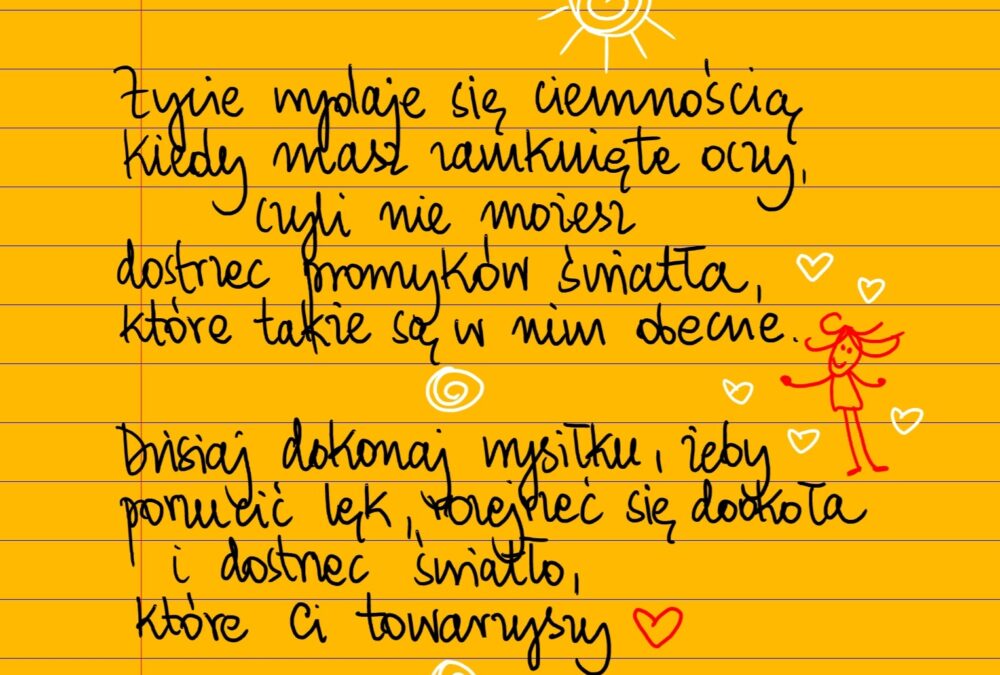 Życie wydaje się ciemnością
kiedy masz zamknięte oczy,
czyli nie możesz
dostrzec promyków światła,
które także są w nim obecne.
Dzisiaj dokonaj wysiłku, żeby
porzucić lęk, rozejrzeć się dookoła
i dostrzec światło,
które Ci towarzyszy